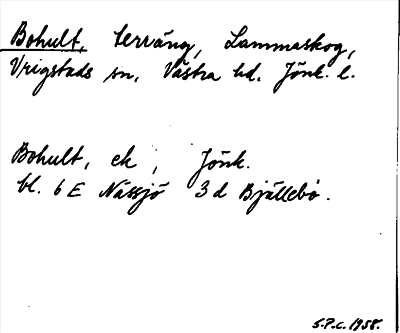 Bohult, terräng, Lammaskog,
Vrigstads sn, Västra hd. Jönk. l.
Bohult, ek, Jönk.
bl. 6 E Nässjö 3 d Bjällebo.
S.P.C. 1958.